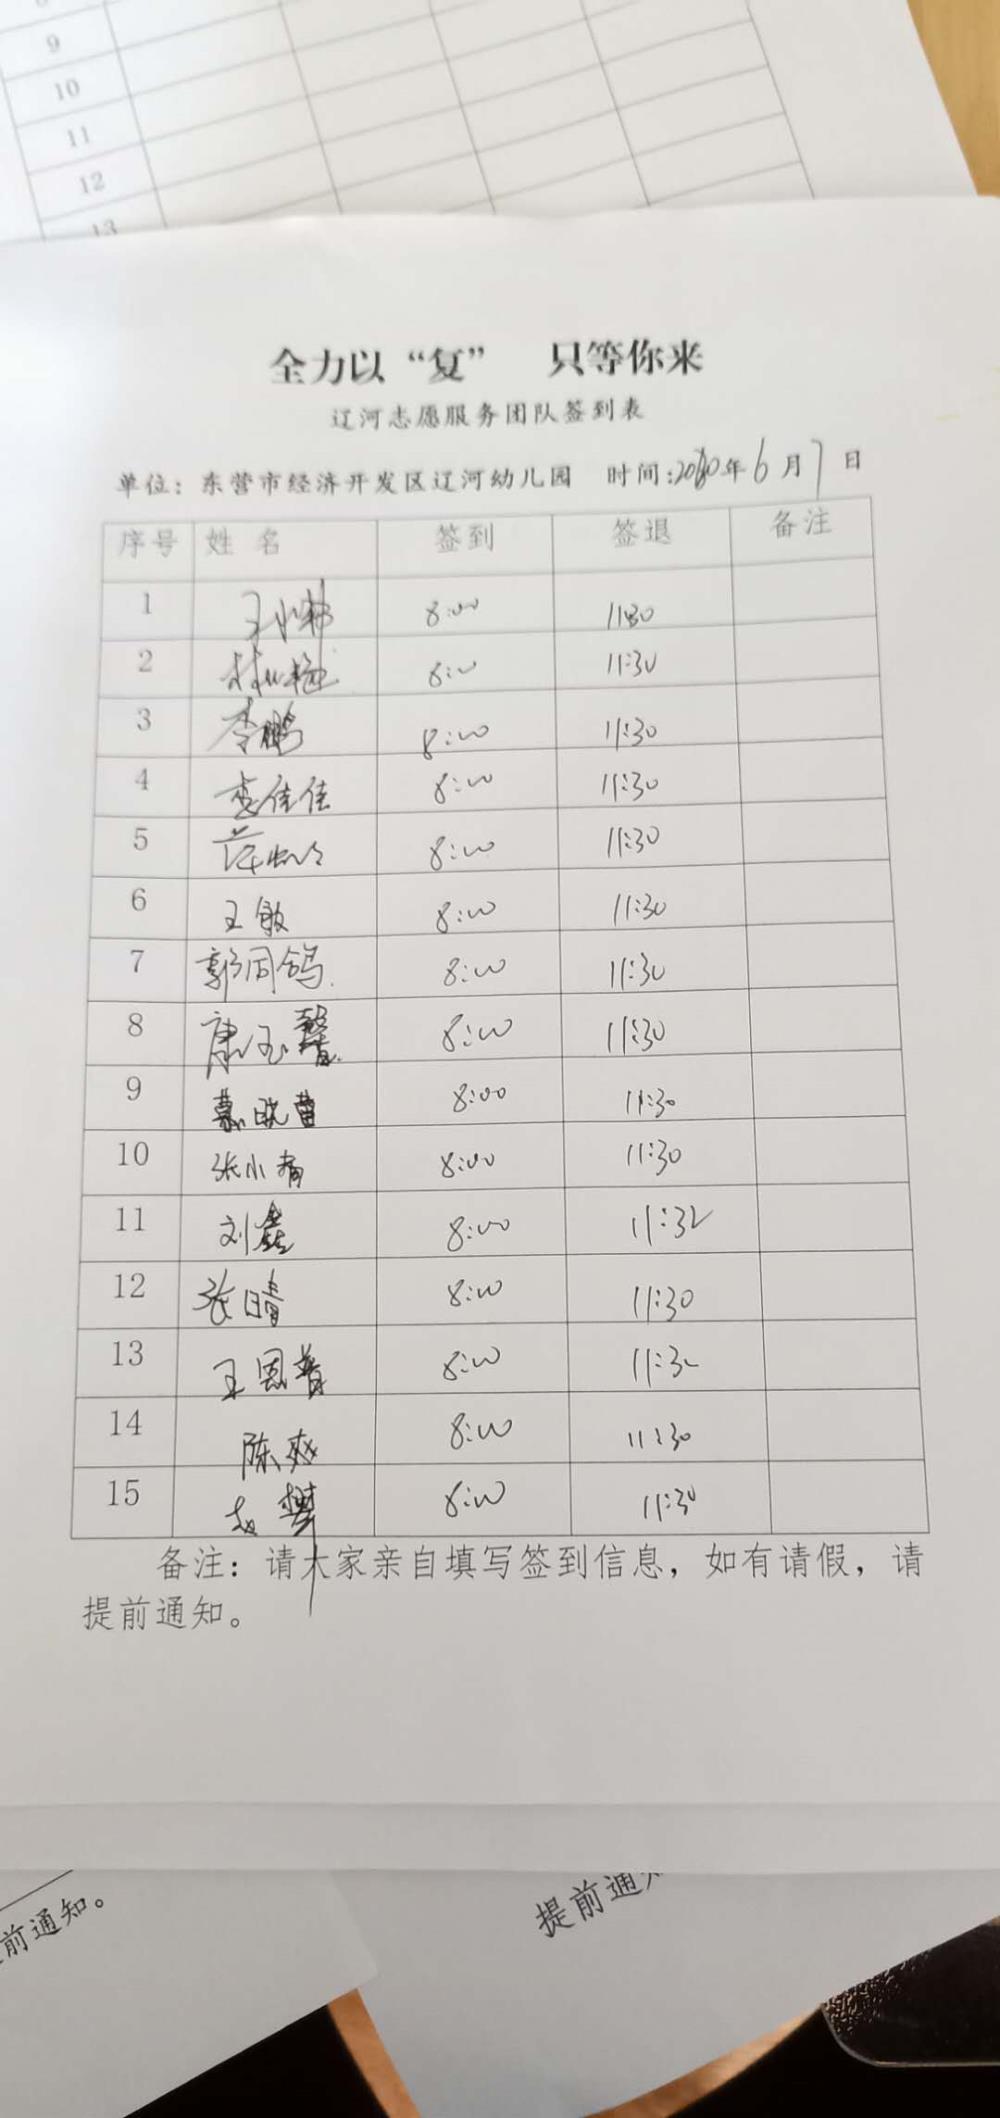 9
10
11
12
13
全力以“复” 只等你来
辽河志愿服务团队签到表
单位：东营市经济开发区辽河幼儿园 时间:2020年6月7日
序号 姓名 签到 签退 备注
1 8:00 11:30
2 8:00 11:30
3 李鹏 8:00 11:30
4 李佳佳 8:00 11:30
5 8:00 11:30
6 王敏 8:00 11:30
7 郭同鸽 8:00 11:30
8 康玉馨 8:00 11:30
9 慕晓曹 8:00 11:30
10 张小青 8:00 11:30
11 刘鑫 8:00 11:30
12 张晴 8:00 11:30
13 王恩普 8:00 11:30
14 陈爽 8:00 11:30
15 8:00 11:30
备注：请大家亲自填写签到信息，如有请假，请
提前通知。
前通知。
提前通